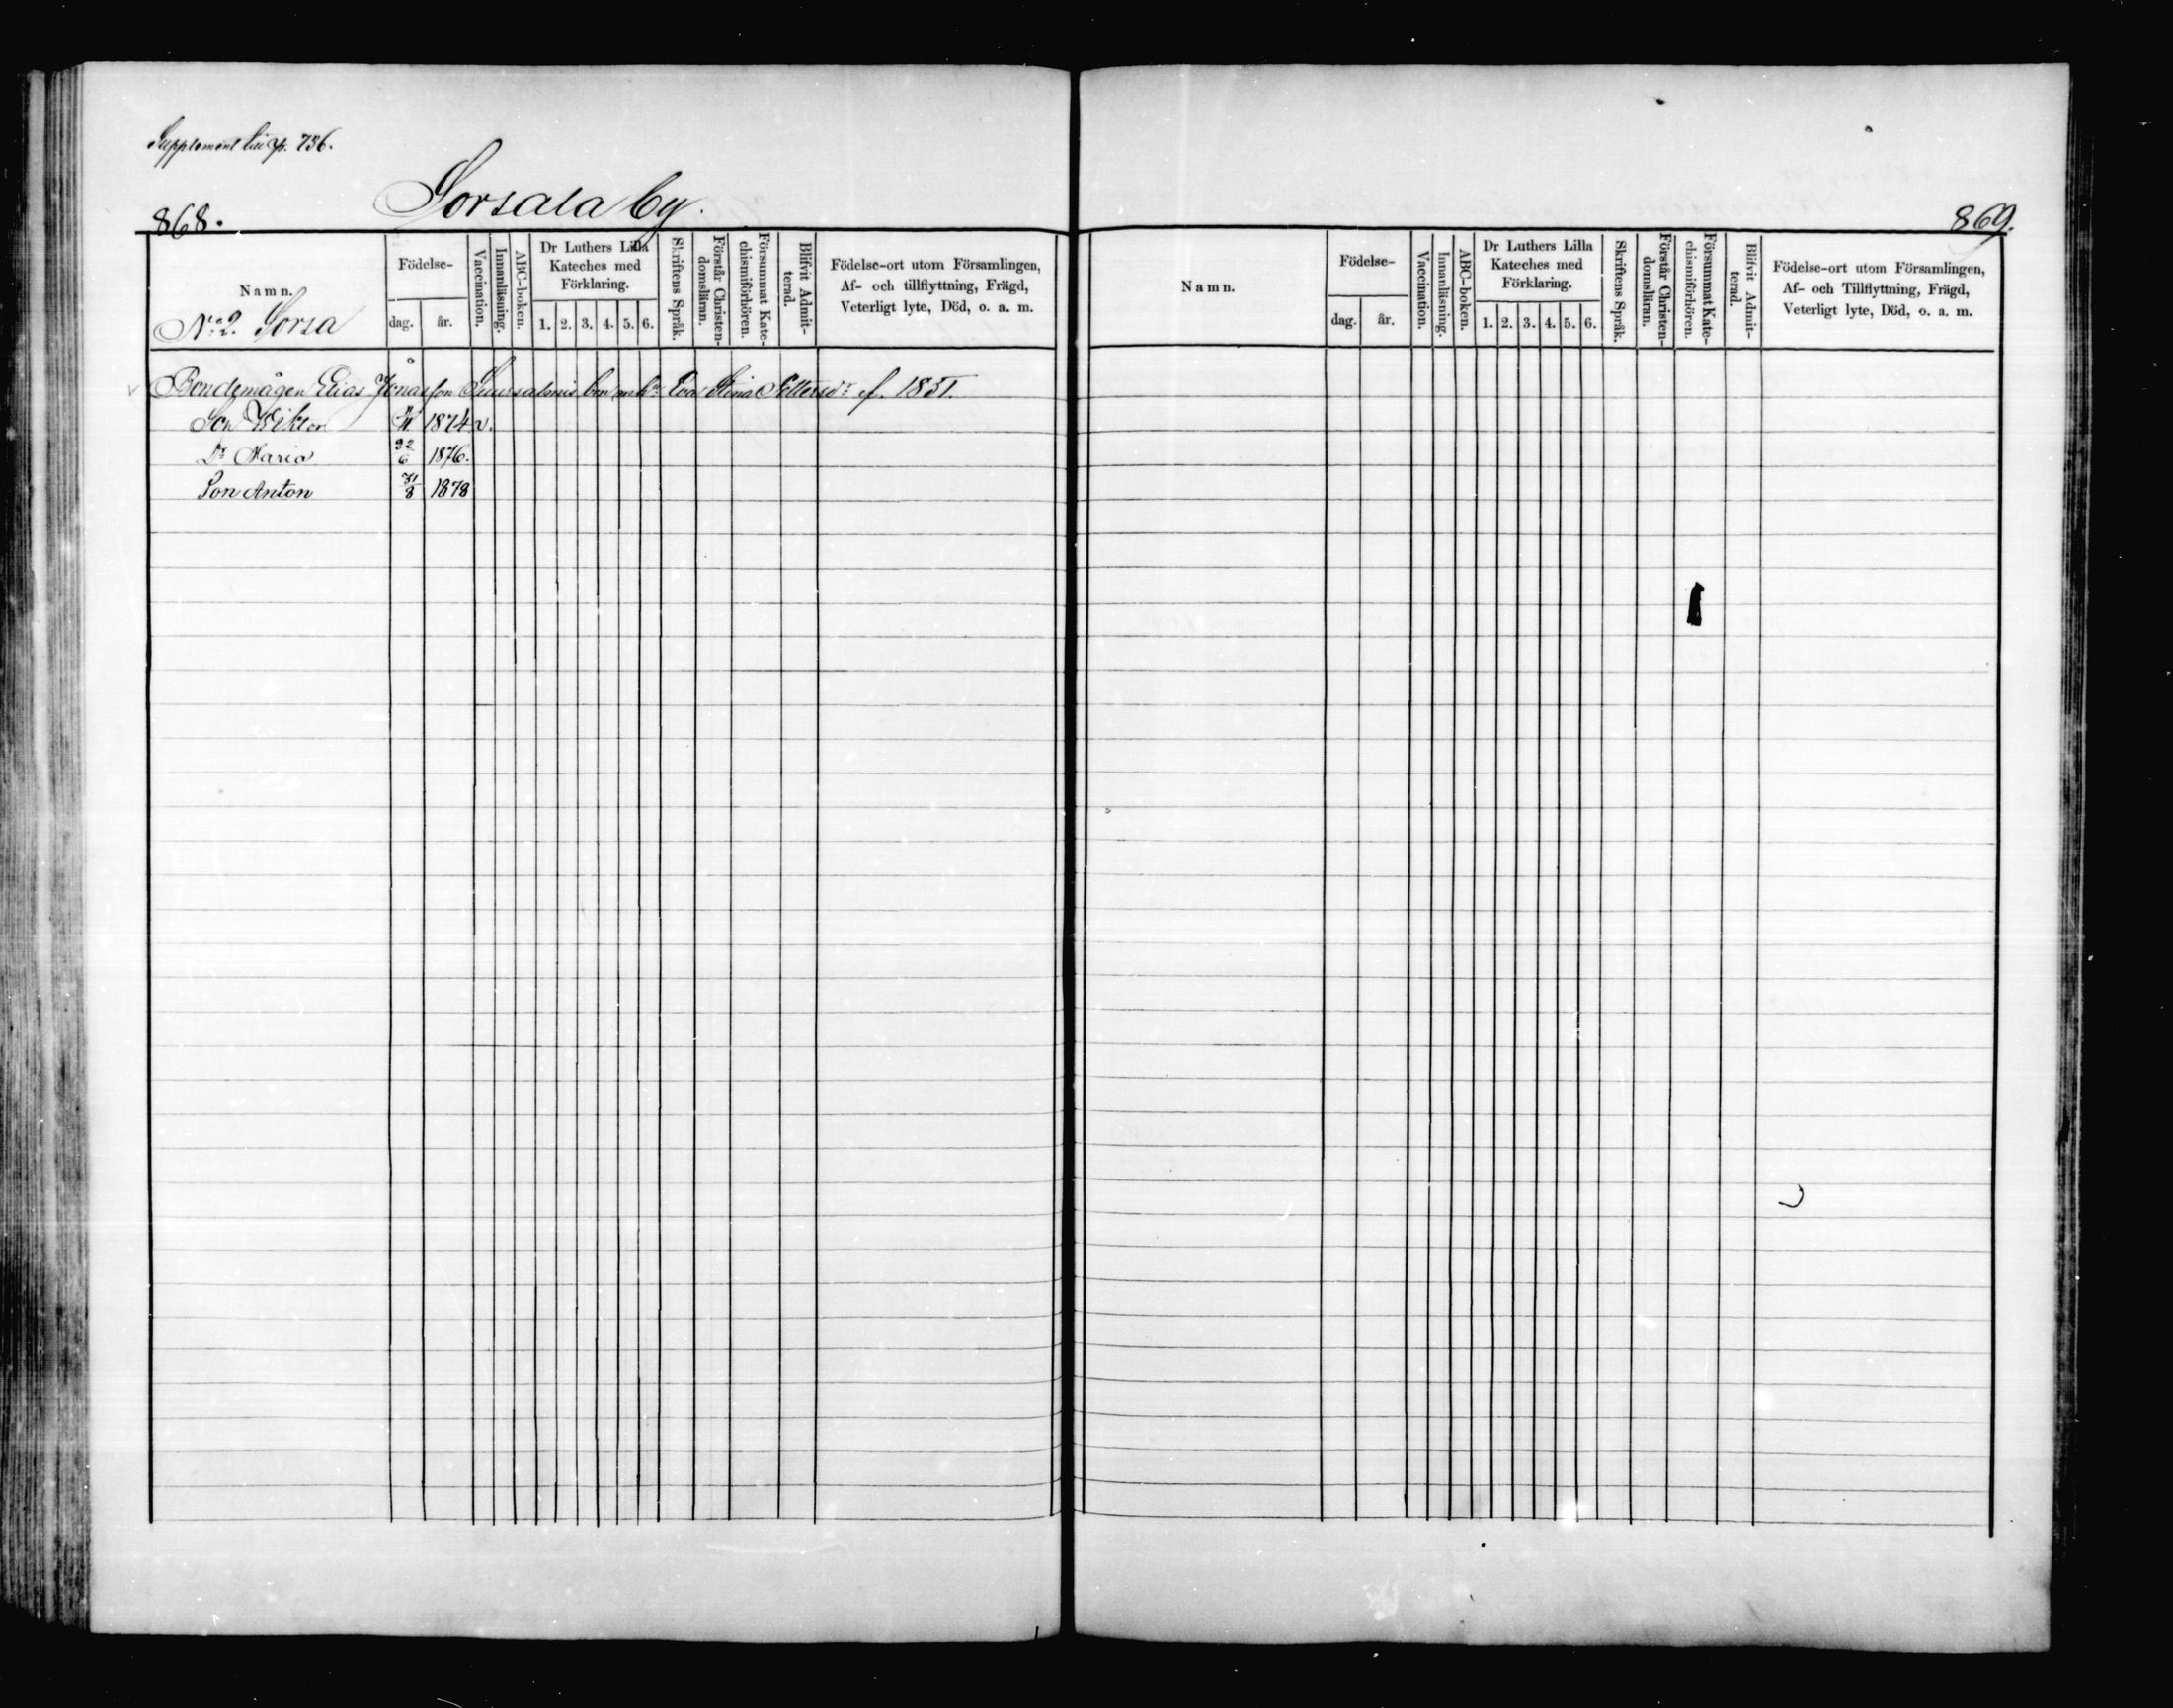 Supplement till p. 736.
Sorsala by.
868.
Namn.
Födelse-
dag.
år.
Vaccination.
Innanläsning.
ABC-boken.
Dr Luthers Lilla
Kateches med
Förklaring.
1. 2. 3. 4. 5. 6.
Skriftens Språk.
Förstår Christen-
domsläran.
Försummat Kate-
chismiförhören.
Blifvit Admit-
terad.
Födelse-ort utom Församlingen,
Af- och tillflyttning, Frägd,
Veterligt lyte, Död, o. a. m.
No 2. Sorsa
Bondemågen Elias Jonasson Eva Stina Pettersdr f. 1851.
Son Wiktor 1874 v.
Dr Maria 22/6 1876.
Son Anton 31/8 1878
869.
Namn.
Födelse-
dag.
år.
Vaccination.
Innanläsning.
ABC-boken.
Dr Luthers Lilla
Kateches med
Förklaring.
1. 2. 3. 4. 5. 6.
Skriftens Språk.
Förstår Christen-
domsläran.
Försummat Kate-
chismiförhören.
Blifvit Admit-
terad.
Födelse-ort utom Församlingen,
Af- och Tillflyttning, Frägd,
Veterligt lyte, Död, o. a. m.